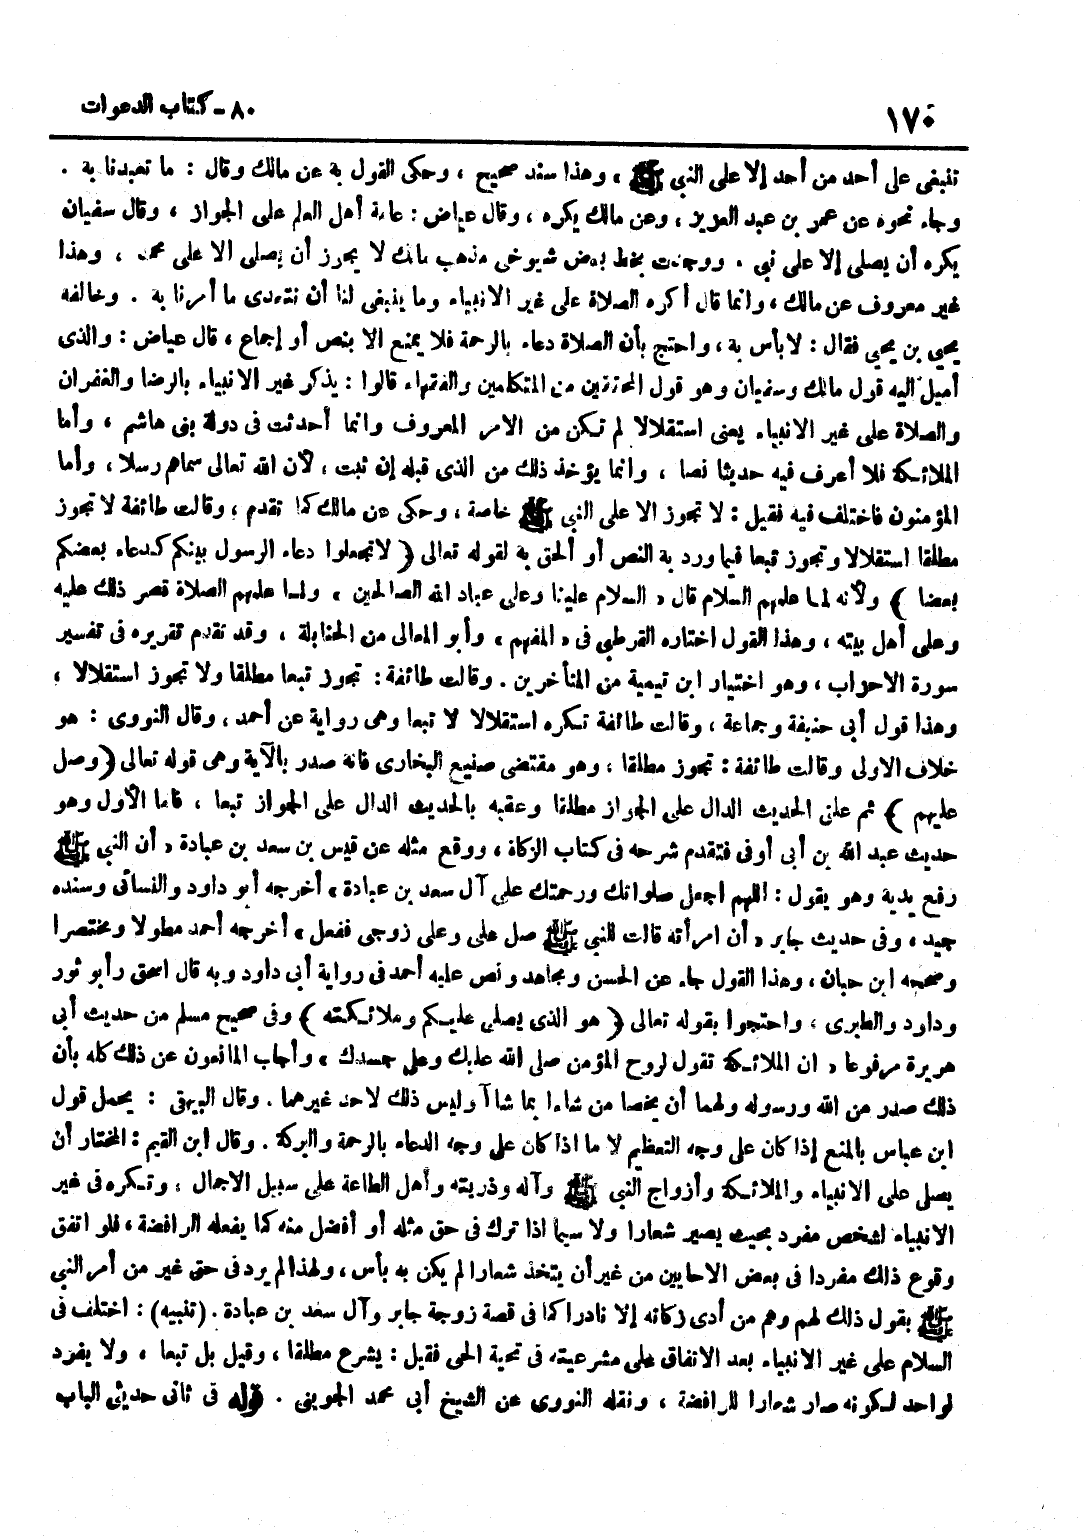 ١٧٠ ٨٠ - كتاب الدعوات
تنبغى على أحد من أحد إلا على النبى ﷺ ، وهذا سند صحيح ، وحكى القول به عن مالك وقال : ما تعبدنا به .
وجاء نحوه عن عمر بن عبد العزيز ، وعن مالك يكره ، وقال عياض : عامة أهل العلم على الجواز ، وقال سفيان
يكره أن يصلى إلا على نبي . ووجدت بخط بعض شيوخى مذهب مالك لا يجوز أن يصلى الا على محمد ، وهذا
غير معروف عن مالك ، وانما قال أكره الصلاة على غير الانبياء وما ينبغى لنا أن نتعدى ما أمرنا به . وخالفه
يحيى بن يحيى فقال : لا بأس به ، واحتج بأن الصلاة دعاء بالرحمة فلا يمنع الا بنص أو إجماع ، قال عياض : والذى
أميل اليه قول مالك وسفيان وهو قول المحققين من المتكلمين والفقهاء قالوا : يذكر غير الانبياء بالرضا والغفران
والصلاة على غير الانبياء يعنى استقلالا لم تكن من الامر المعروف وانما أحدثت فى دولة بنى هاشم ، وأما
الملائكة فلا أعرف فيه حديثا نصا ، وانما يؤخذ ذلك من الذى قبله إن ثبت ، لأن الله تعالى سماهم رسلا ، وأما
المؤمنون فاختلف فيه فقيل : لا تجوز الا على النبى ﷺ خاصة ، وحكى عن مالك كما تقدم ، وقالت طائفة لا تجوز
مطلقا استقلالا وتجوز تبعا فيما ورد به النص أو ألحق به لقوله تعالى ﴿ لا تجعلوا دعاء الرسول بينكم كدعاء بعضكم
بعضا ﴾ ولأنه لما علمهم السلام قال « السلام علينا وعلى عباد الله الصالحين » ولما علمهم الصلاة قصر ذلك عليه
وعلى أهل بيته ، وهذا القول اختاره القرطبى فى « المفهم » وأبو المعالى من الحنابلة ، وقد تقدم تقريره فى تفسير
سورة الاحزاب ، وهو اختيار ابن تيمية من المتأخرين . وقالت طائفة : تجوز تبعا مطلقا ولا تجوز استقلالا ،
وهذا قول أبى حنيفة وجماعة ، وقالت طائفة تكره استقلالا لا تبعا وهى رواية عن أحمد ، وقال النووى : هو
خلاف الاولى وقالت طائفة : تجوز مطلقا ، وهو مقتضى صنيع البخارى فانه صدر بالآية وهى قوله تعالى ﴿ وصل
عليهم ﴾ ثم علق الحديث الدال على الجواز مطلقا وعقبه بالحديث الدال على الجواز تبعا ، فاما الأول وهو
حديث عبد الله بن أبى أوفى فتقدم شرحه فى كتاب الزكاة ، ووقع مثله عن قيس بن سعد بن عبادة « أن النبى ﷺ
رفع يديه وهو يقول : اللهم اجعل صلواتك ورحمتك على آل سعد بن عبادة » أخرجه أبو داود والنسائى وسنده
جيد ، وفى حديث جابر « أن امرأته قالت للنبى ﷺ صل على وعلى زوجى ففعل » أخرجه أحمد مطولا ومختصرا
وصححه ابن حبان ، وهذا القول جاء عن الحسن ومجاهد ونص عليه أحمد فى رواية أبى داود وبه قال اسحق وأبو ثور
وداود والطبرى ، واحتجوا بقوله تعالى ﴿ هو الذى يصلى عليكم وملائكته ﴾ وفى صحيح مسلم من حديث أبى
هريرة مرفوعا « ان الملائكة تقول لروح المؤمن صلى الله عليك وعلى جسدك » وأجاب المانعون عن ذلك كله بأن
ذلك صدر من الله ورسوله ولهما أن يخصا من شاءا بما شاآ وليس ذلك لاحد غيرهما . وقال البيهقى : يحمل قول
ابن عباس بالمنع إذا كان على وجه التعظيم لا ما اذا كان على وجه الدعاء بالرحمة والبركة . وقال ابن القيم : المختار أن
يصلى على الانبياء والملائكة وأزواج النبى ﷺ وآله وذريته وأهل الطاعة على سبيل الاجمال ، وتكره فى غير
الانبياء لشخص مفرد بحيث يصير شعارا ولا سيما اذا ترك فى حق مثله أو أفضل منه كما يفعله الرافضة ، فلو اتفق
وقوع ذلك مفردا فى بعض الاحايين من غير أن يتخذ شعارا لم يكن به بأس ، ولهذا لم يرد فى حق غير من أمر النبى
ﷺ بقول ذلك لهم وهم من أدى زكاته إلا نادرا كما فى قصة زوجة جابر وآل سعد بن عبادة . (تنبيه) : اختلف فى
السلام على غير الانبياء بعد الاتفاق على مشرعيته فى تحية الحى فقيل : يشرع مطلقا ، وقيل بل تبعا ، ولا يفرد
لواحد لكونه صار شعارا للرافضة ، ونقله النووى عن الشيخ أبى محمد الجوينى . قوله فى ثانى حديثى الباب